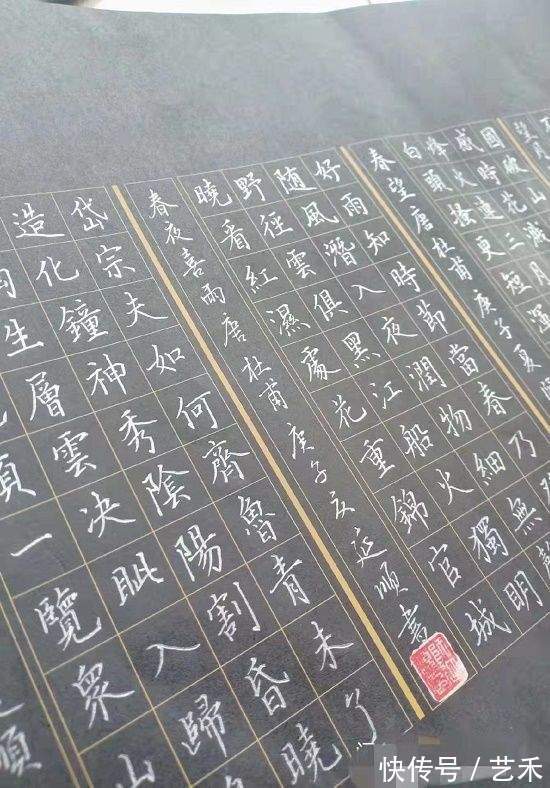 望月
國破山
感時花濺
烽火連三月
白頭搔更短渾
春望 唐 杜甫 庚子夏
好雨知時節當春乃發
随風潛入夜潤物細無聲
野徑雲俱黑江船火獨明
曉看紅濕處花重錦官城
春夜喜雨 唐 杜甫 庚子夏 延順書
岱宗夫如何齊魯青未了
造化鐘神秀陰陽割昏曉
胸生層雲決眥入歸
頂一覽眾山
順
快传号／艺禾